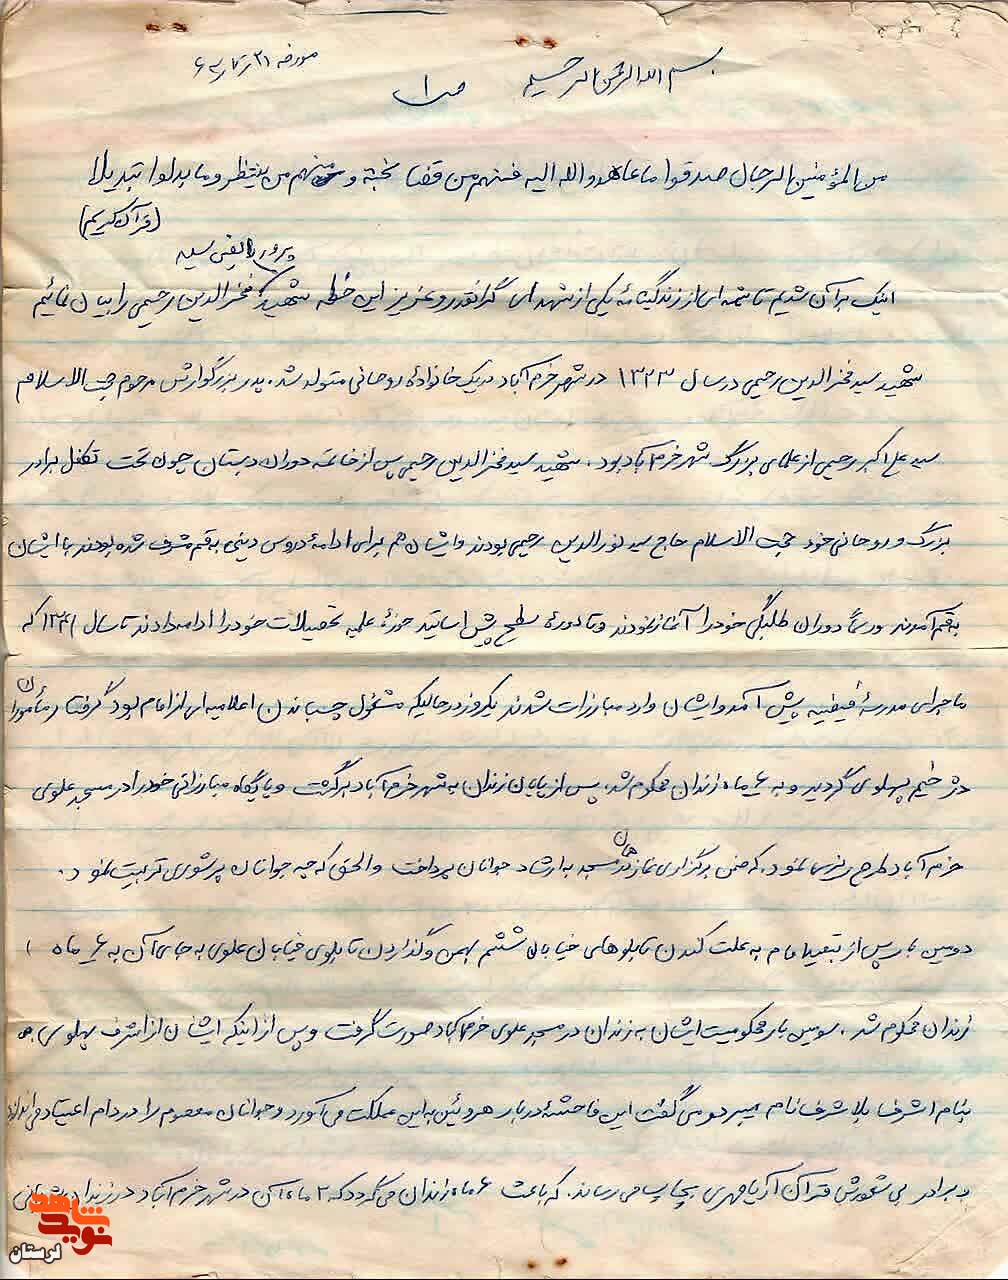 بسم الله الرحمن الرحیم
ص ۱
مورخه ۲۱ ۶۲
من المؤمنین الرجال صدقوا ما عاهدو الله الیه فمنهم من قضا نحبة و منهم من ینتظر و ما بدلوا تبدیلا
(قرآن کریم)
سید
اینک بر آن شدیم تا شمه ای از زندگینامهٔ یکی از شهدای گرانقدر و عزیز این خطه شهید فخرالدین رحیمی را بیان نمائیم
شهید سید فخرالدین رحیمی در سال ۱۳۲۳ در شهر خرم آباد در یک خانوادهٔ روحانی متولد شد. پدر بزرگوارش مرحوم حجت الاسلام
سید علی اکبر رحیمی از علمای بزرگ شهر خرم آباد بود. شهید سید فخرالدین رحیمی پس از خاتمه دوران دبستان چون تحت تکفل برادر
بزرگ و روحانی خود حجت الاسلام حاج سید نورالدین رحیمی بودند و ایشان هم برای ادامهٔ دروس دینی به قم مشرف شده بودند با ایشان
به قم آمدند و رسماً دوران طلبگی خود را آغاز نمودند و تا دورهٔ سطح پیش اساتید حوزهٔ علمیه تحصیلات خود را ادامه دادند تا سال ۱۳۴۱ که
ماجرای مدرسهٔ فیضیه پیش آمد و ایشان وارد مبارزات شدند یکروز در حالیکه مشغول چسباندن اعلامیه ای از امام بود گرفتار مأموران
دژخیم پهلوی گردید و به ۶ ماه زندان محکوم شد. پس از پایان زندان به شهر خرم آباد برگشت و پایگاه مبارزاتی خود را در مسجد علوی
خرم آباد طرح ریزی نمود. که ضمن برگزاری نماز در همان مسجد به ارشاد جوانان پرداخت و الحق که چه جوانان پرشوری تربیت نمود.
دومین بار پس از تبعید امام به علت کندن تابلوهای خیابان ششم بهمن و گذاردن تابلوی خیابان علوی به جای آن به ۶ ماه
زندان محکوم شد. سومین بار محکومیت ایشان به زندان در مسجد علوی خرم آباد صورت گرفت و پس از اینکه ایشان از اشرف پهلوی
بنام اشرف بلا شرف نام میبرد و می گفت این فاحشهٔ دربار هروئین به این مملکت می آورد و جوانان معصوم را در دام اعتیاد می اندازد
و برادر بی شعورش قرآن آریامهری بچاپ می رساند. که باعث ۶ ماه زندان می گردد که ۳ ماه آن در شهر خرم آباد در زندان
نوید شاهد
لرستان